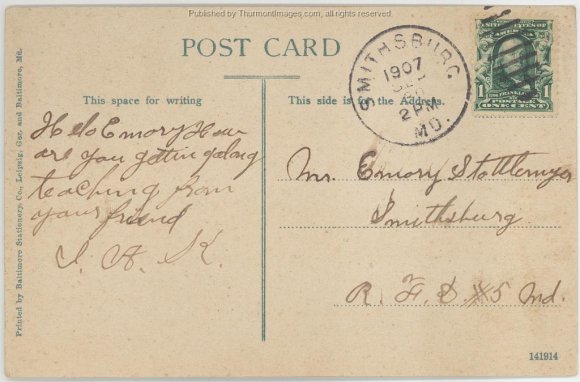 Published by ThurmontImages.com, all rights reserved
POST CARD
SMITHSBURG
1907
2 PM
MD.
1 1
POSTAGE
ONE CENT
This space for writing
This side is for the Address.
Helo Emory How
are you getting along
teaching from
your friend
I. A. K.
Mr. Emory Stottlemyer
Smithsburg
R. F. D #5 Md.
Printed by Baltimore Stationery. Co., Leipzig, Ger. and Baltimore, Md.
141914